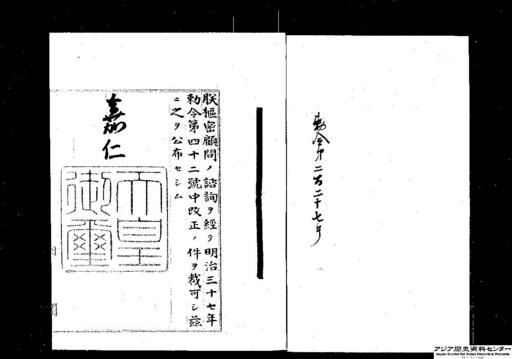 勅令第二百二十七号
朕樞密顧問ノ諮詢ヲ經テ明治三十七年
勅令第四十二號中改正ノ件ヲ裁可シ茲
ニ之ヲ公布セシム
嘉仁
天皇
御璽
アジア歴史資料センター
Japan Center for Asian Historical Records